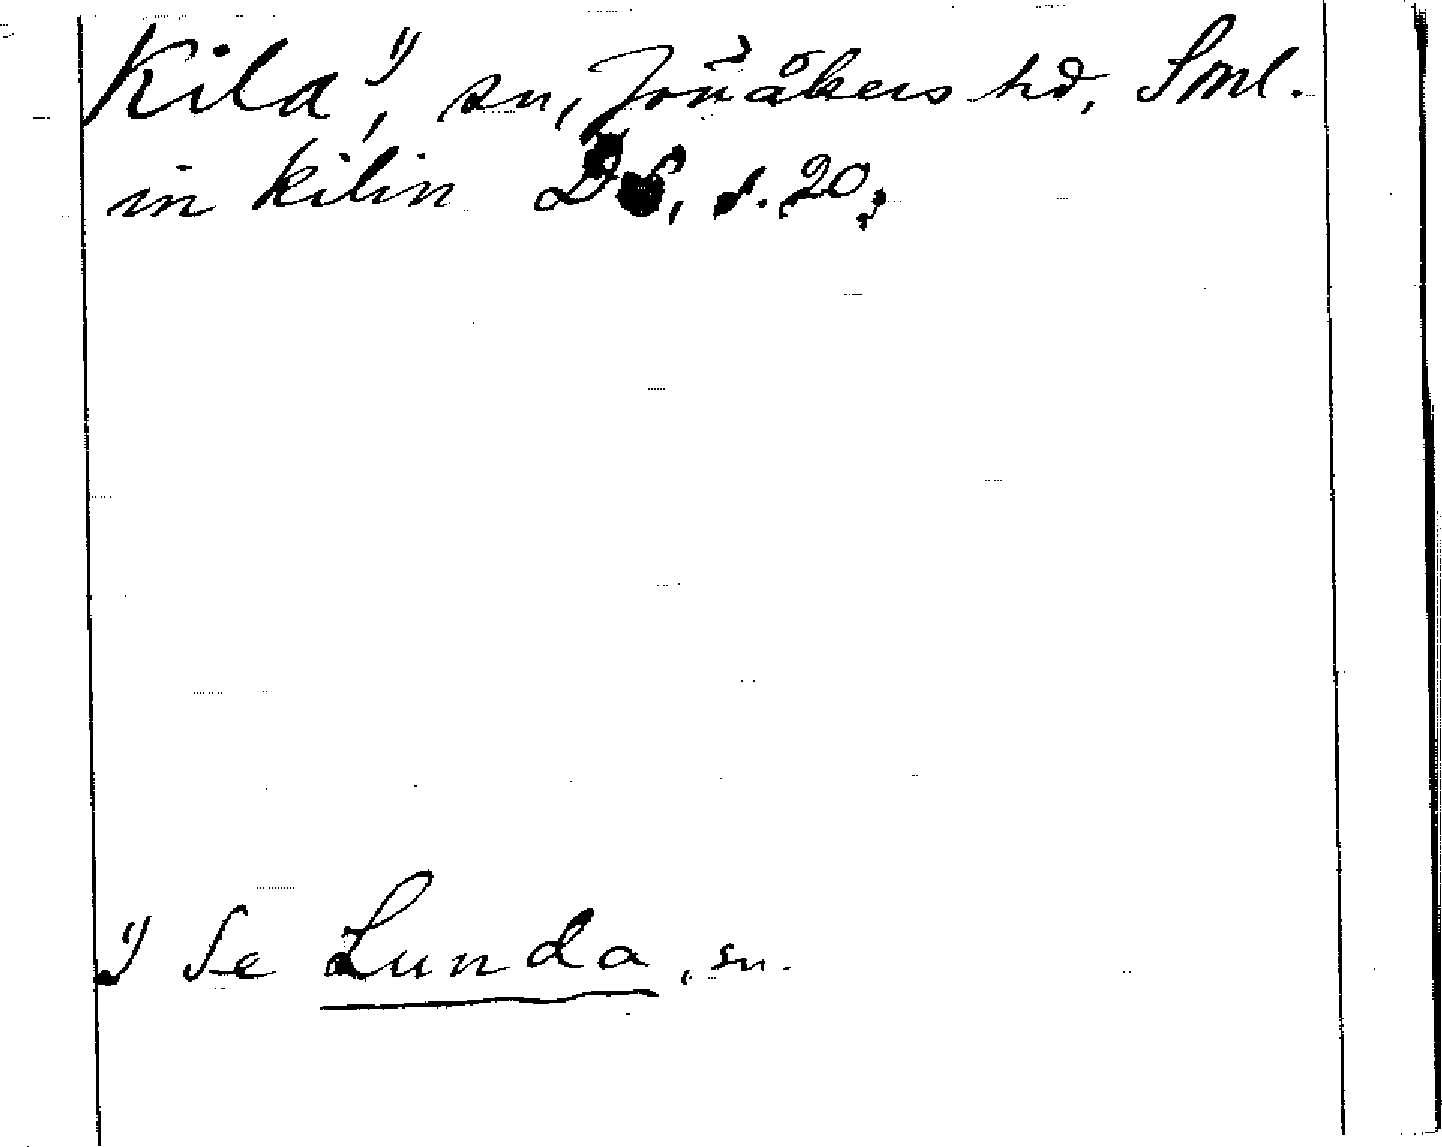 Kila¹⁾, sn, Jönåkers hd, Sml.
in kilin DS, s. 20;
¹⁾ Se Lunda, sn.